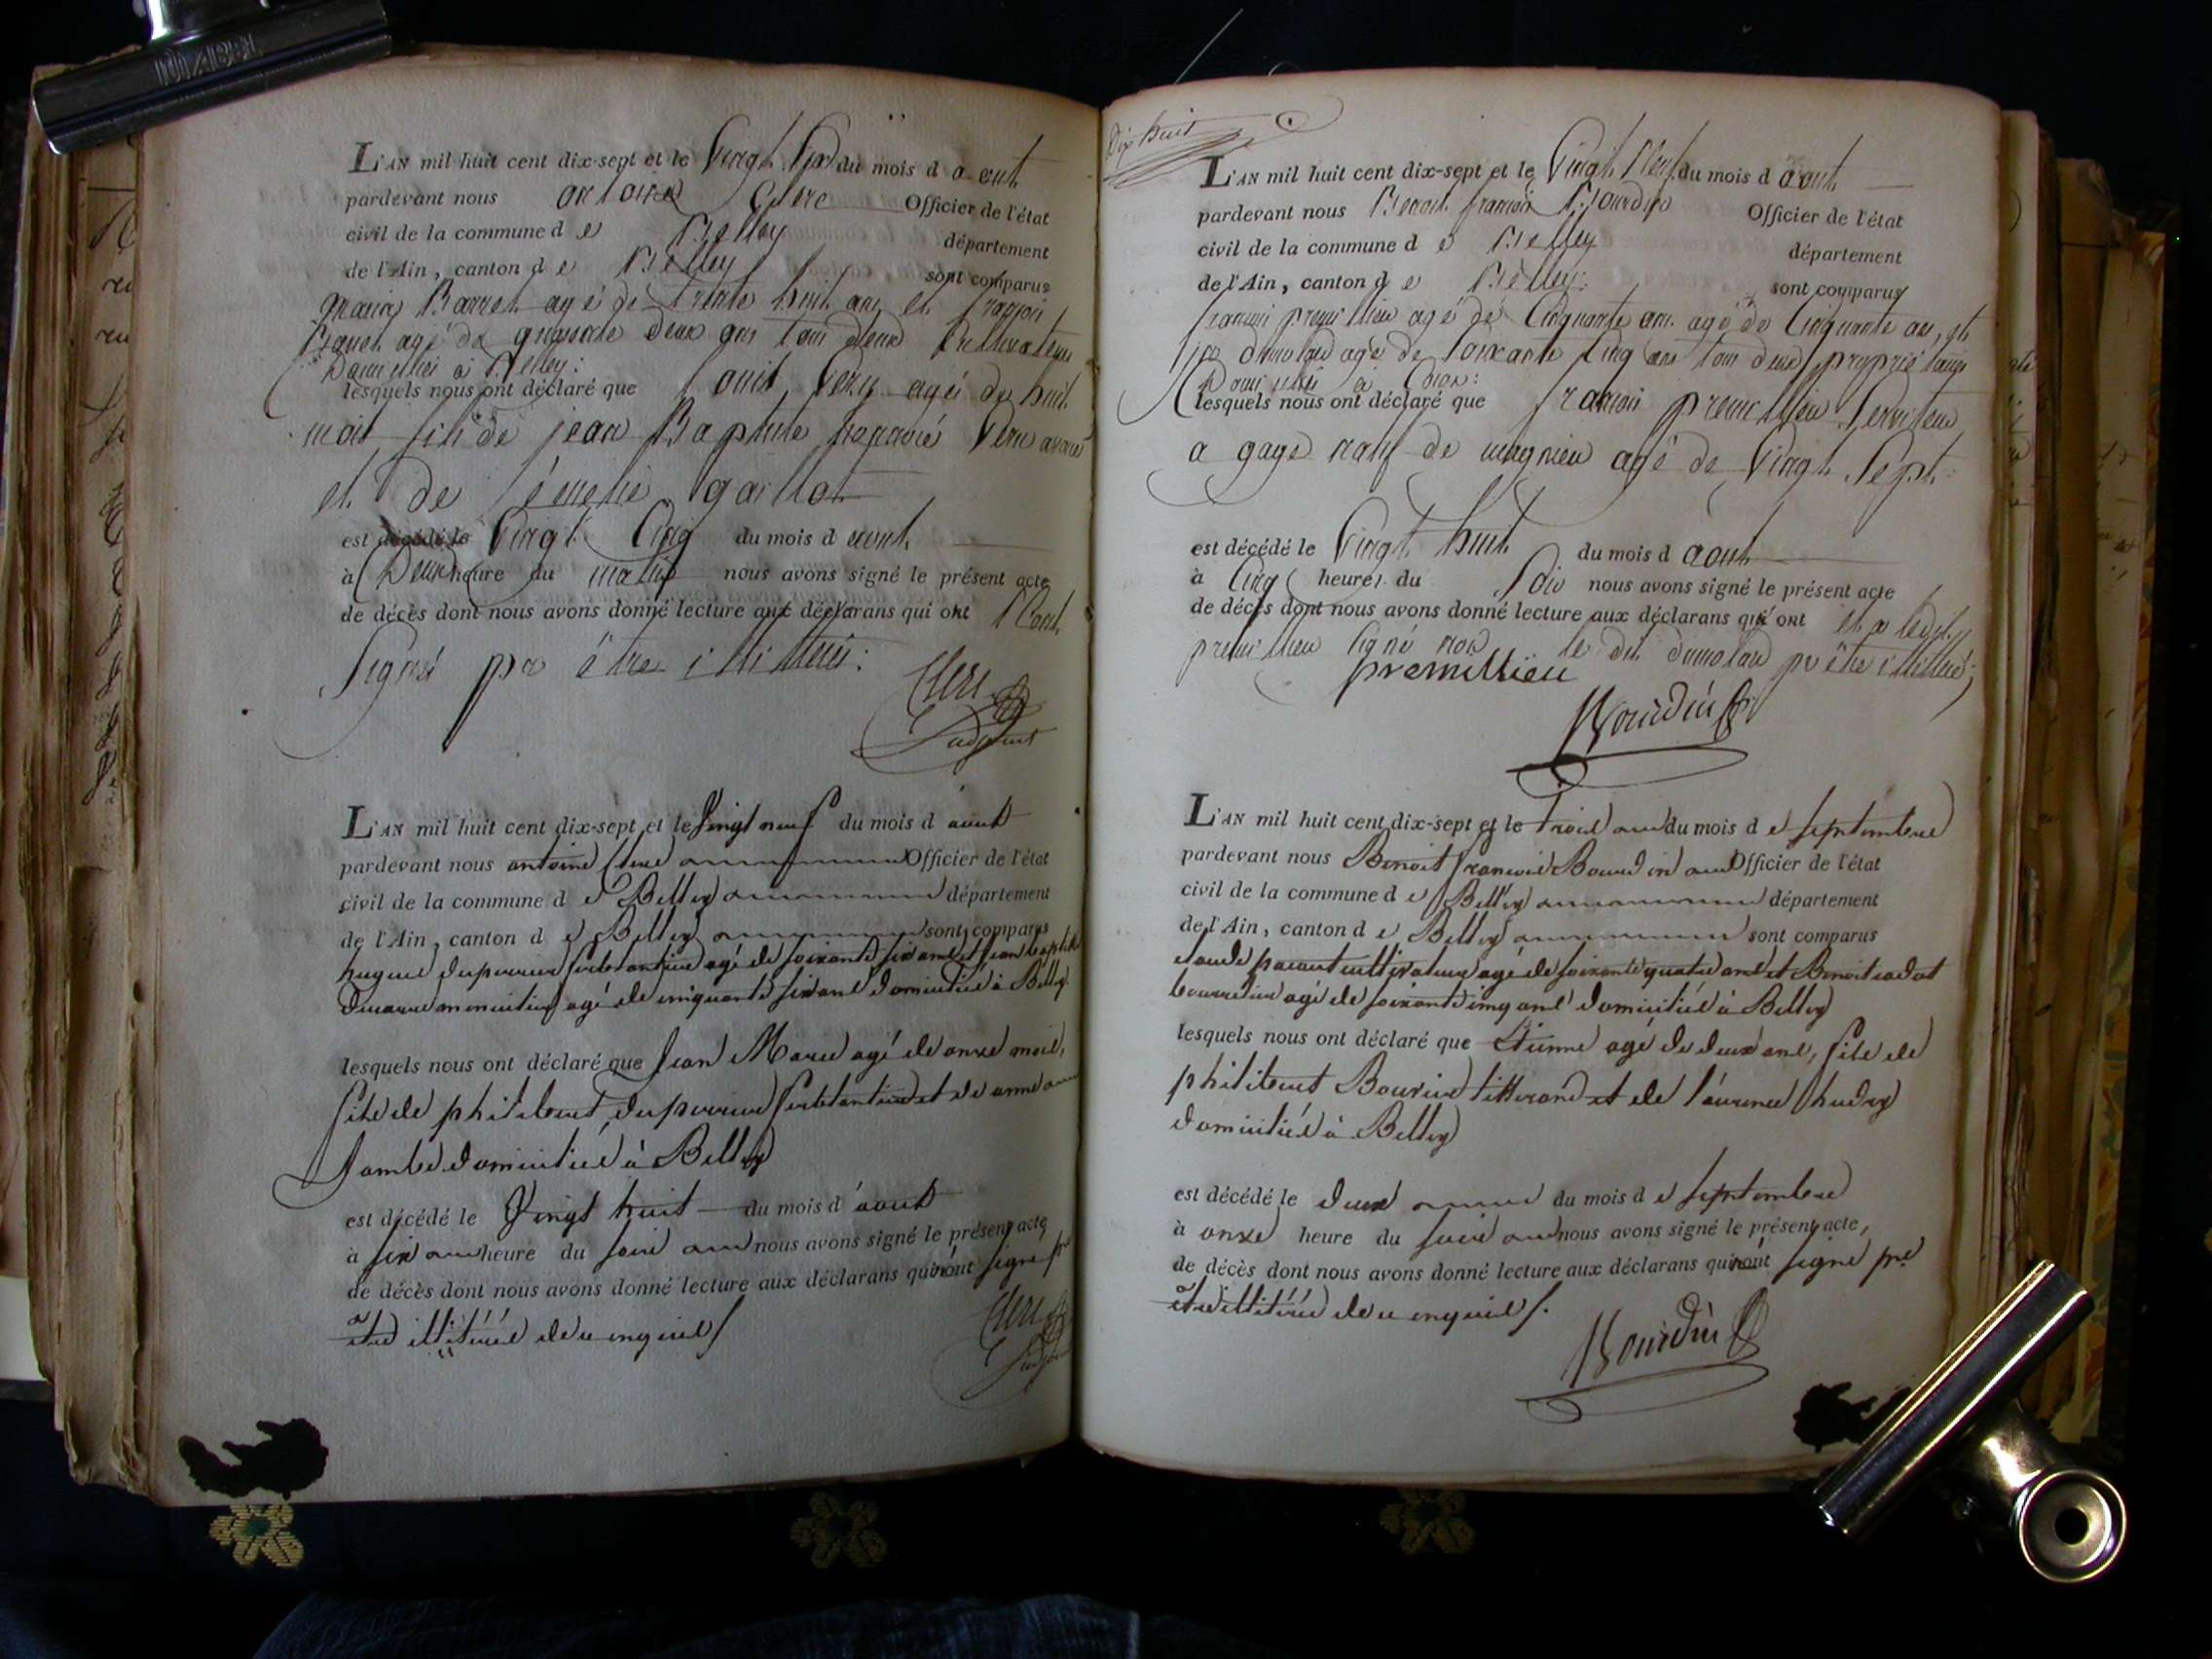 L'AN mil huit cent dix-sept et le Vingt Six du mois d aout
pardevant nous antoine Clerc Officier de l'état
civil de la commune d e Belley département
de l'Ain, canton d e Belley sont comparus
Barret agé de trente huit ans et françois
agé de quarante deux ans tous deux Cultivateurs
Domiciliés à Belley:
lesquels nous ont déclaré que Louis agé de huit
mois fils de jean Baptiste
et de
est décédé le Vingt Cinq du mois d aout
à Deux heure du matin nous avons signé le présent acte
de décès dont nous avons donné lecture aux déclarans qui ont
Signé pr être illitérés:
Clerc
adjoint
L'AN mil huit cent dix-sept et le Vingt neuf du mois d'août
pardevant nous antoine Clerc Officier de l'état
civil de la commune d e Belley département
de l'Ain, canton d e Belley sont comparus
hugues duperrier agé de soixante six ans et jean baptiste
agé de cinquante six ans domiciliés à Belley
lesquels nous ont déclaré que Jean Marie agé de onze mois,
fils de philibert duperrier et de anne
domiciliés à Belley
est décédé le Vingt huit du mois d'août
à six heure du soir nous avons signé le présent acte
de décès dont nous avons donné lecture aux déclarans qui n'ont signé pr
être illitérés de ce enquis /
Clerc
Dix huit
L'AN mil huit cent dix-sept et le Vingt Neuf du mois d aout
pardevant nous Benoit françois Bourdin Officier de l'état
civil de la commune d e Belley département
de l'Ain, canton d e Belley: sont comparus
françois premillieu agé de Cinquante ans agé de Cinquante ans, et
dumolard agé de soixante Cinq ans tous deux propriétaires
Domiciliés à
lesquels nous ont déclaré que françois premillieu Serviteur
a gage natif de magnieu agé de Vingt Sept:
est décédé le Vingt huit du mois d aout
à Cinq heures du Soir nous avons signé le présent acte
de décès dont nous avons donné lecture aux déclarans qui ont et a ledit
premillieu signé non le dit dumolard pr être illitéré;
premillieu
Bourdin
L'AN mil huit cent dix-sept et le trois du mois d e septembre
pardevant nous Benoit françois Bourdin Officier de l'état
civil de la commune d e Belley département
de l'Ain, canton d e Belley sont comparus
claude cultivateur agé de soixante quatre ans et Benoit
agé de soixante cinq ans domiciliés à Belley
lesquels nous ont déclaré que Etienne agé de deux ans, fils de
philibert Bouvier tisserand et de laurence
domiciliés à Belley
est décédé le deux du mois d e septembre
à onze heure du soir nous avons signé le présent acte,
de décès dont nous avons donné lecture aux déclarans qui n'ont signé pr
être illitérés de ce enquis /.
Bourdin